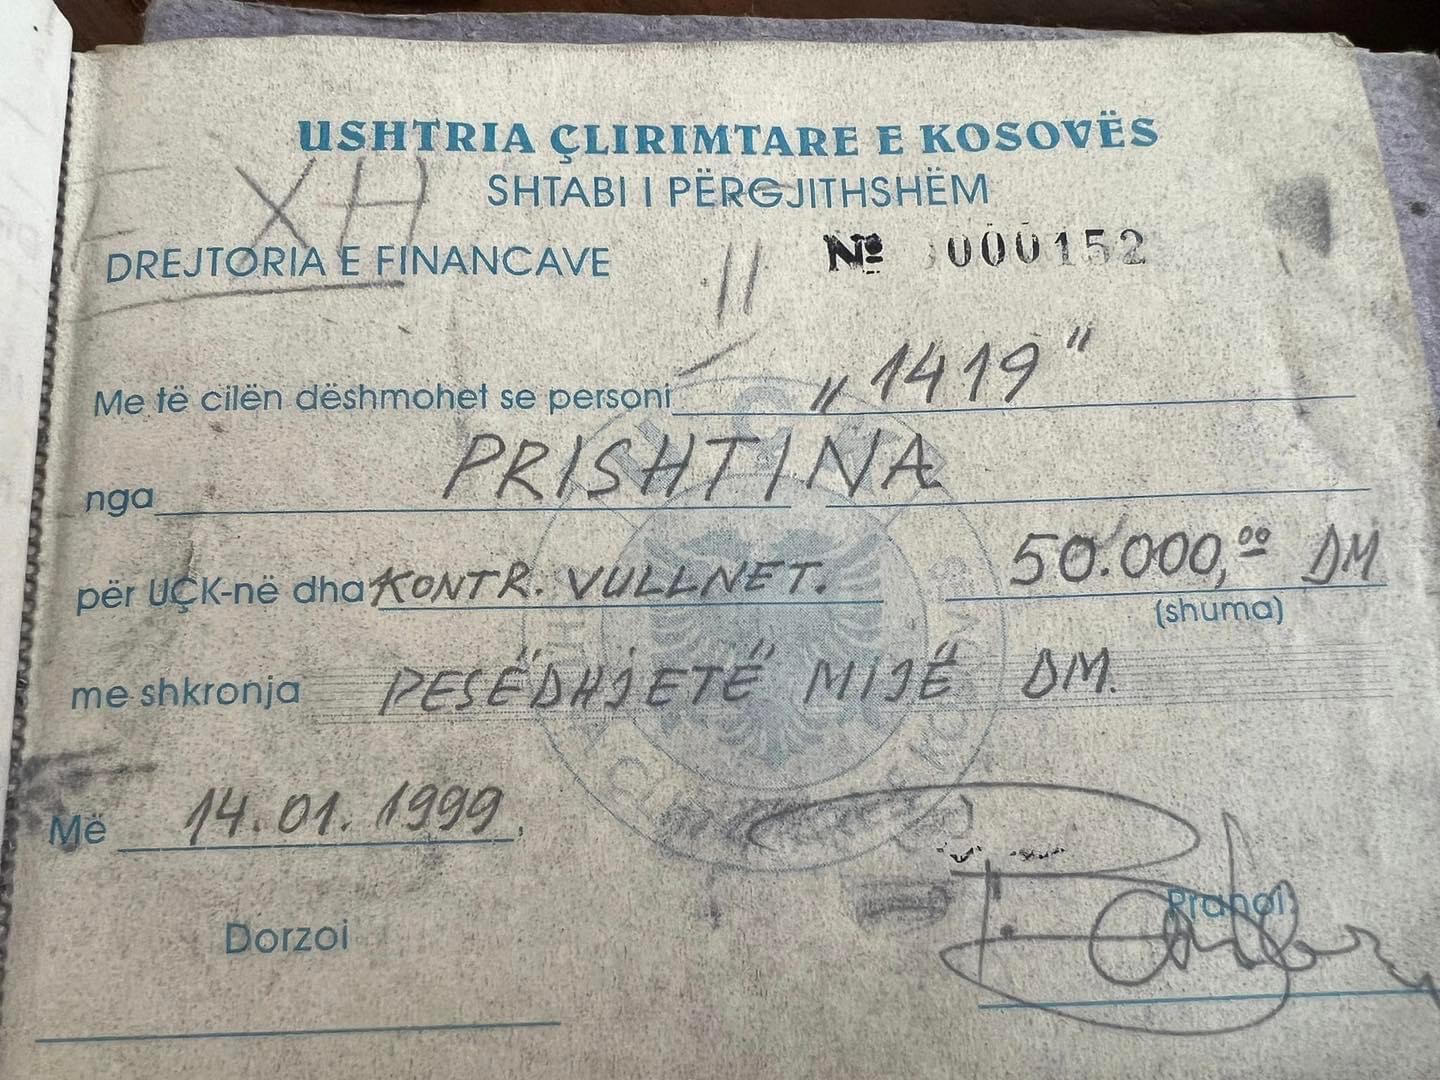 USHTRIA ÇLIRIMTARE E KOSOVËS
SHTABI I PËRGJITHSHËM
XH
DREJTORIA E FINANCAVE
№ 000152
Me të cilën dëshmohet se personi „1419"
nga PRISHTINA
për UÇK-në dha KONTR. VULLNET. 50.000,00 DM
(shuma)
me shkronja PESËDHJETË MIJË DM.
Më 14.01.1999,
Dorzoi
Pranoi